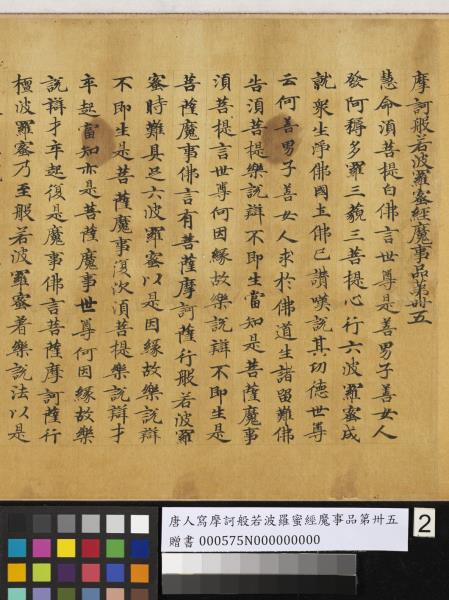 摩訶般若波羅蜜經魔事品第卅五
慧命須菩提白佛言世尊是善男子善女人
發阿耨多羅三藐三菩提心行六波羅蜜成
就衆生淨佛國土佛已讚嘆說其功德世尊
云何善男子善女人求於佛道生諸留難佛
告須菩提樂說辯不即生當知是菩薩魔事
須菩提言世尊何因緣故樂說辯不即生是
菩薩魔事佛言有菩薩摩訶薩行般若波羅
蜜時難具足六波羅蜜以是因緣故樂說辯
不即生是菩薩魔事復次須菩提樂說辯才
卒起當知亦是菩薩魔事世尊何因緣故樂
說辯才卒起復是魔事佛言菩薩摩訶薩行
檀波羅蜜乃至般若波羅蜜著樂說法以是
唐人寫摩訶般若波羅蜜經魔事品第卅五
贈書 000575N000000000
2